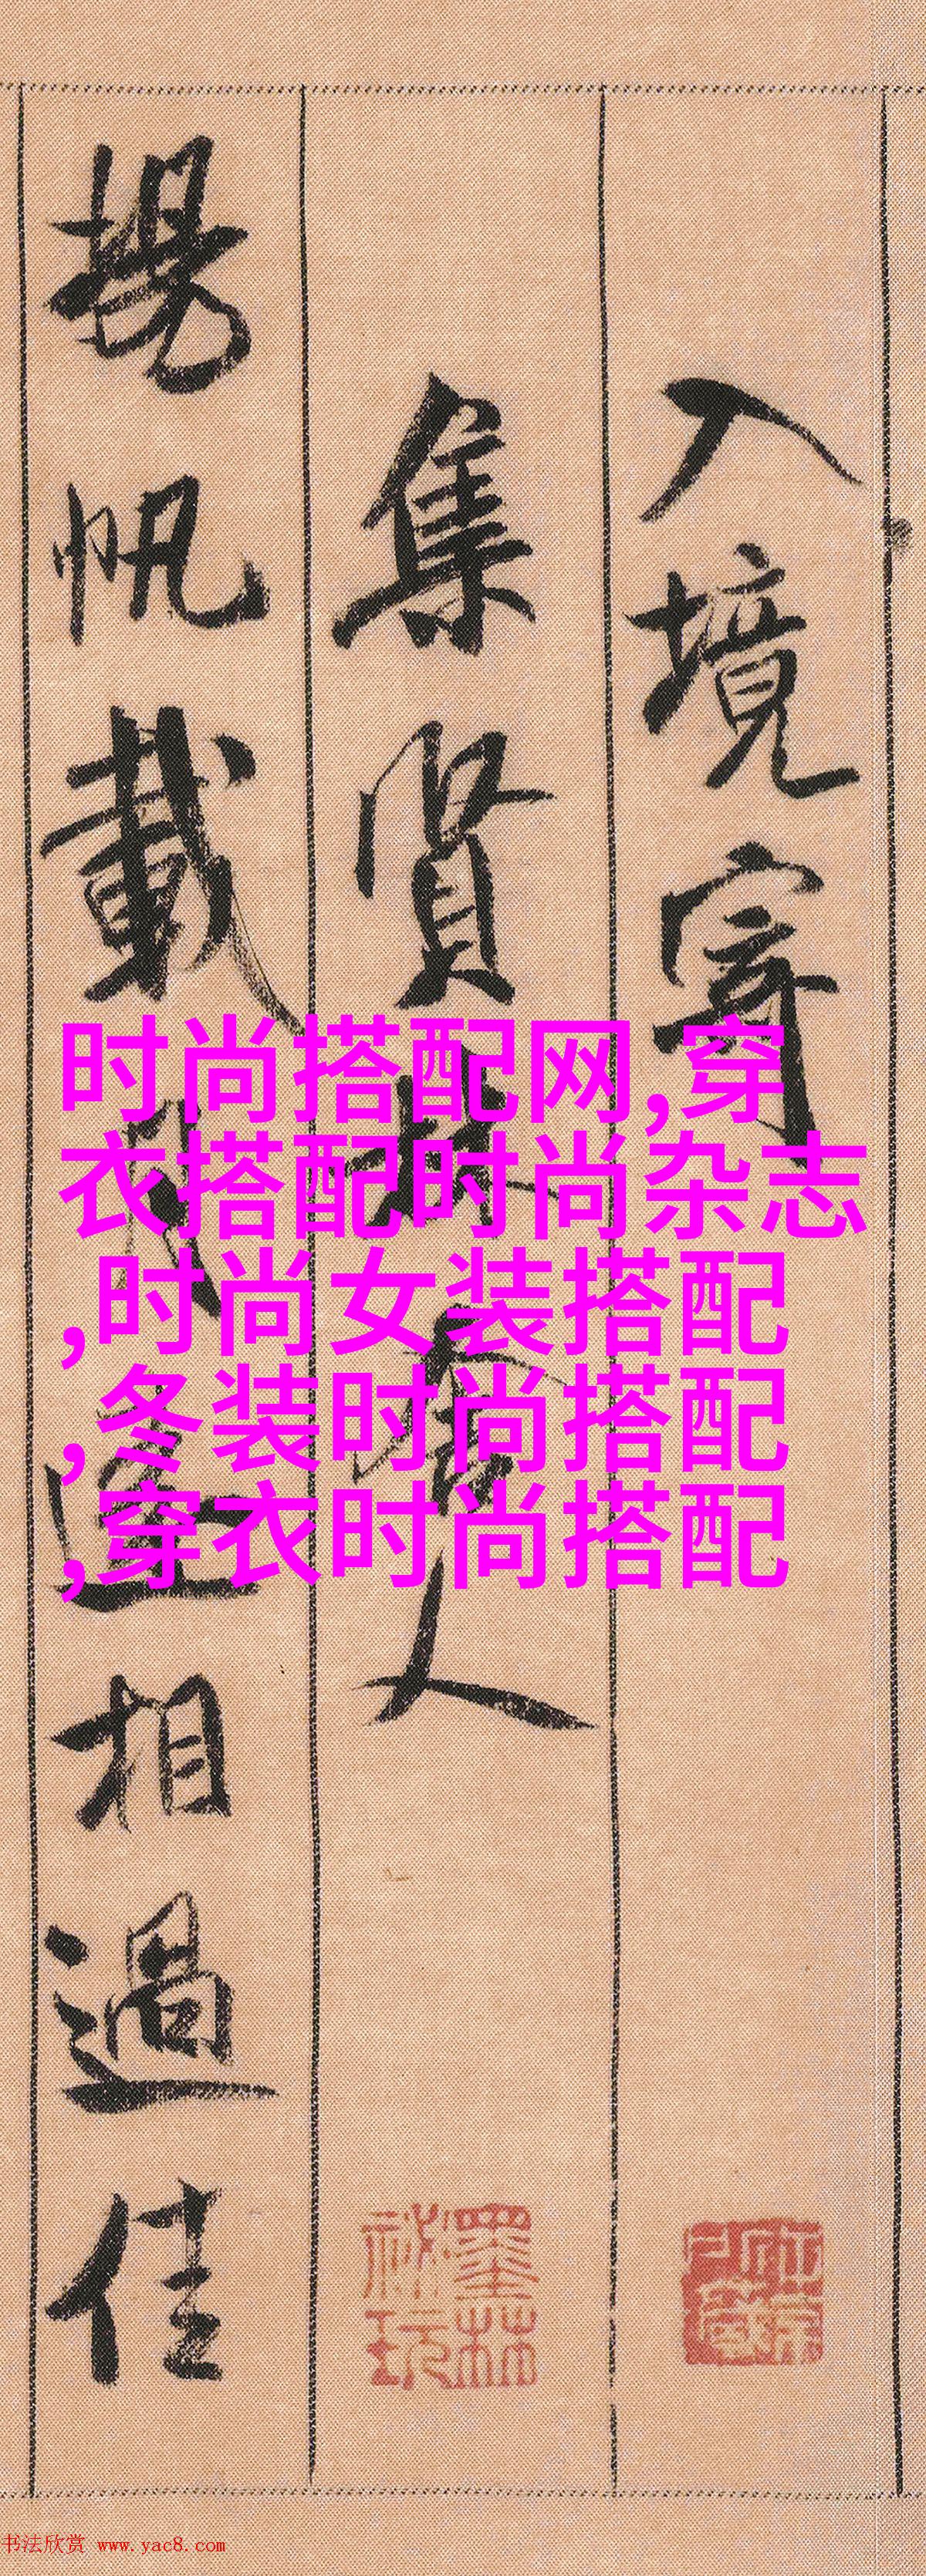 入境寄
集賢林舍人
揚帆載月遠相過佳
时尚搭配网,穿
衣搭配时尚杂志
,时尚女装搭配
,冬装时尚搭配
,穿衣时尚搭配
墨林
秘玩
书法欣赏 www.yac8.com